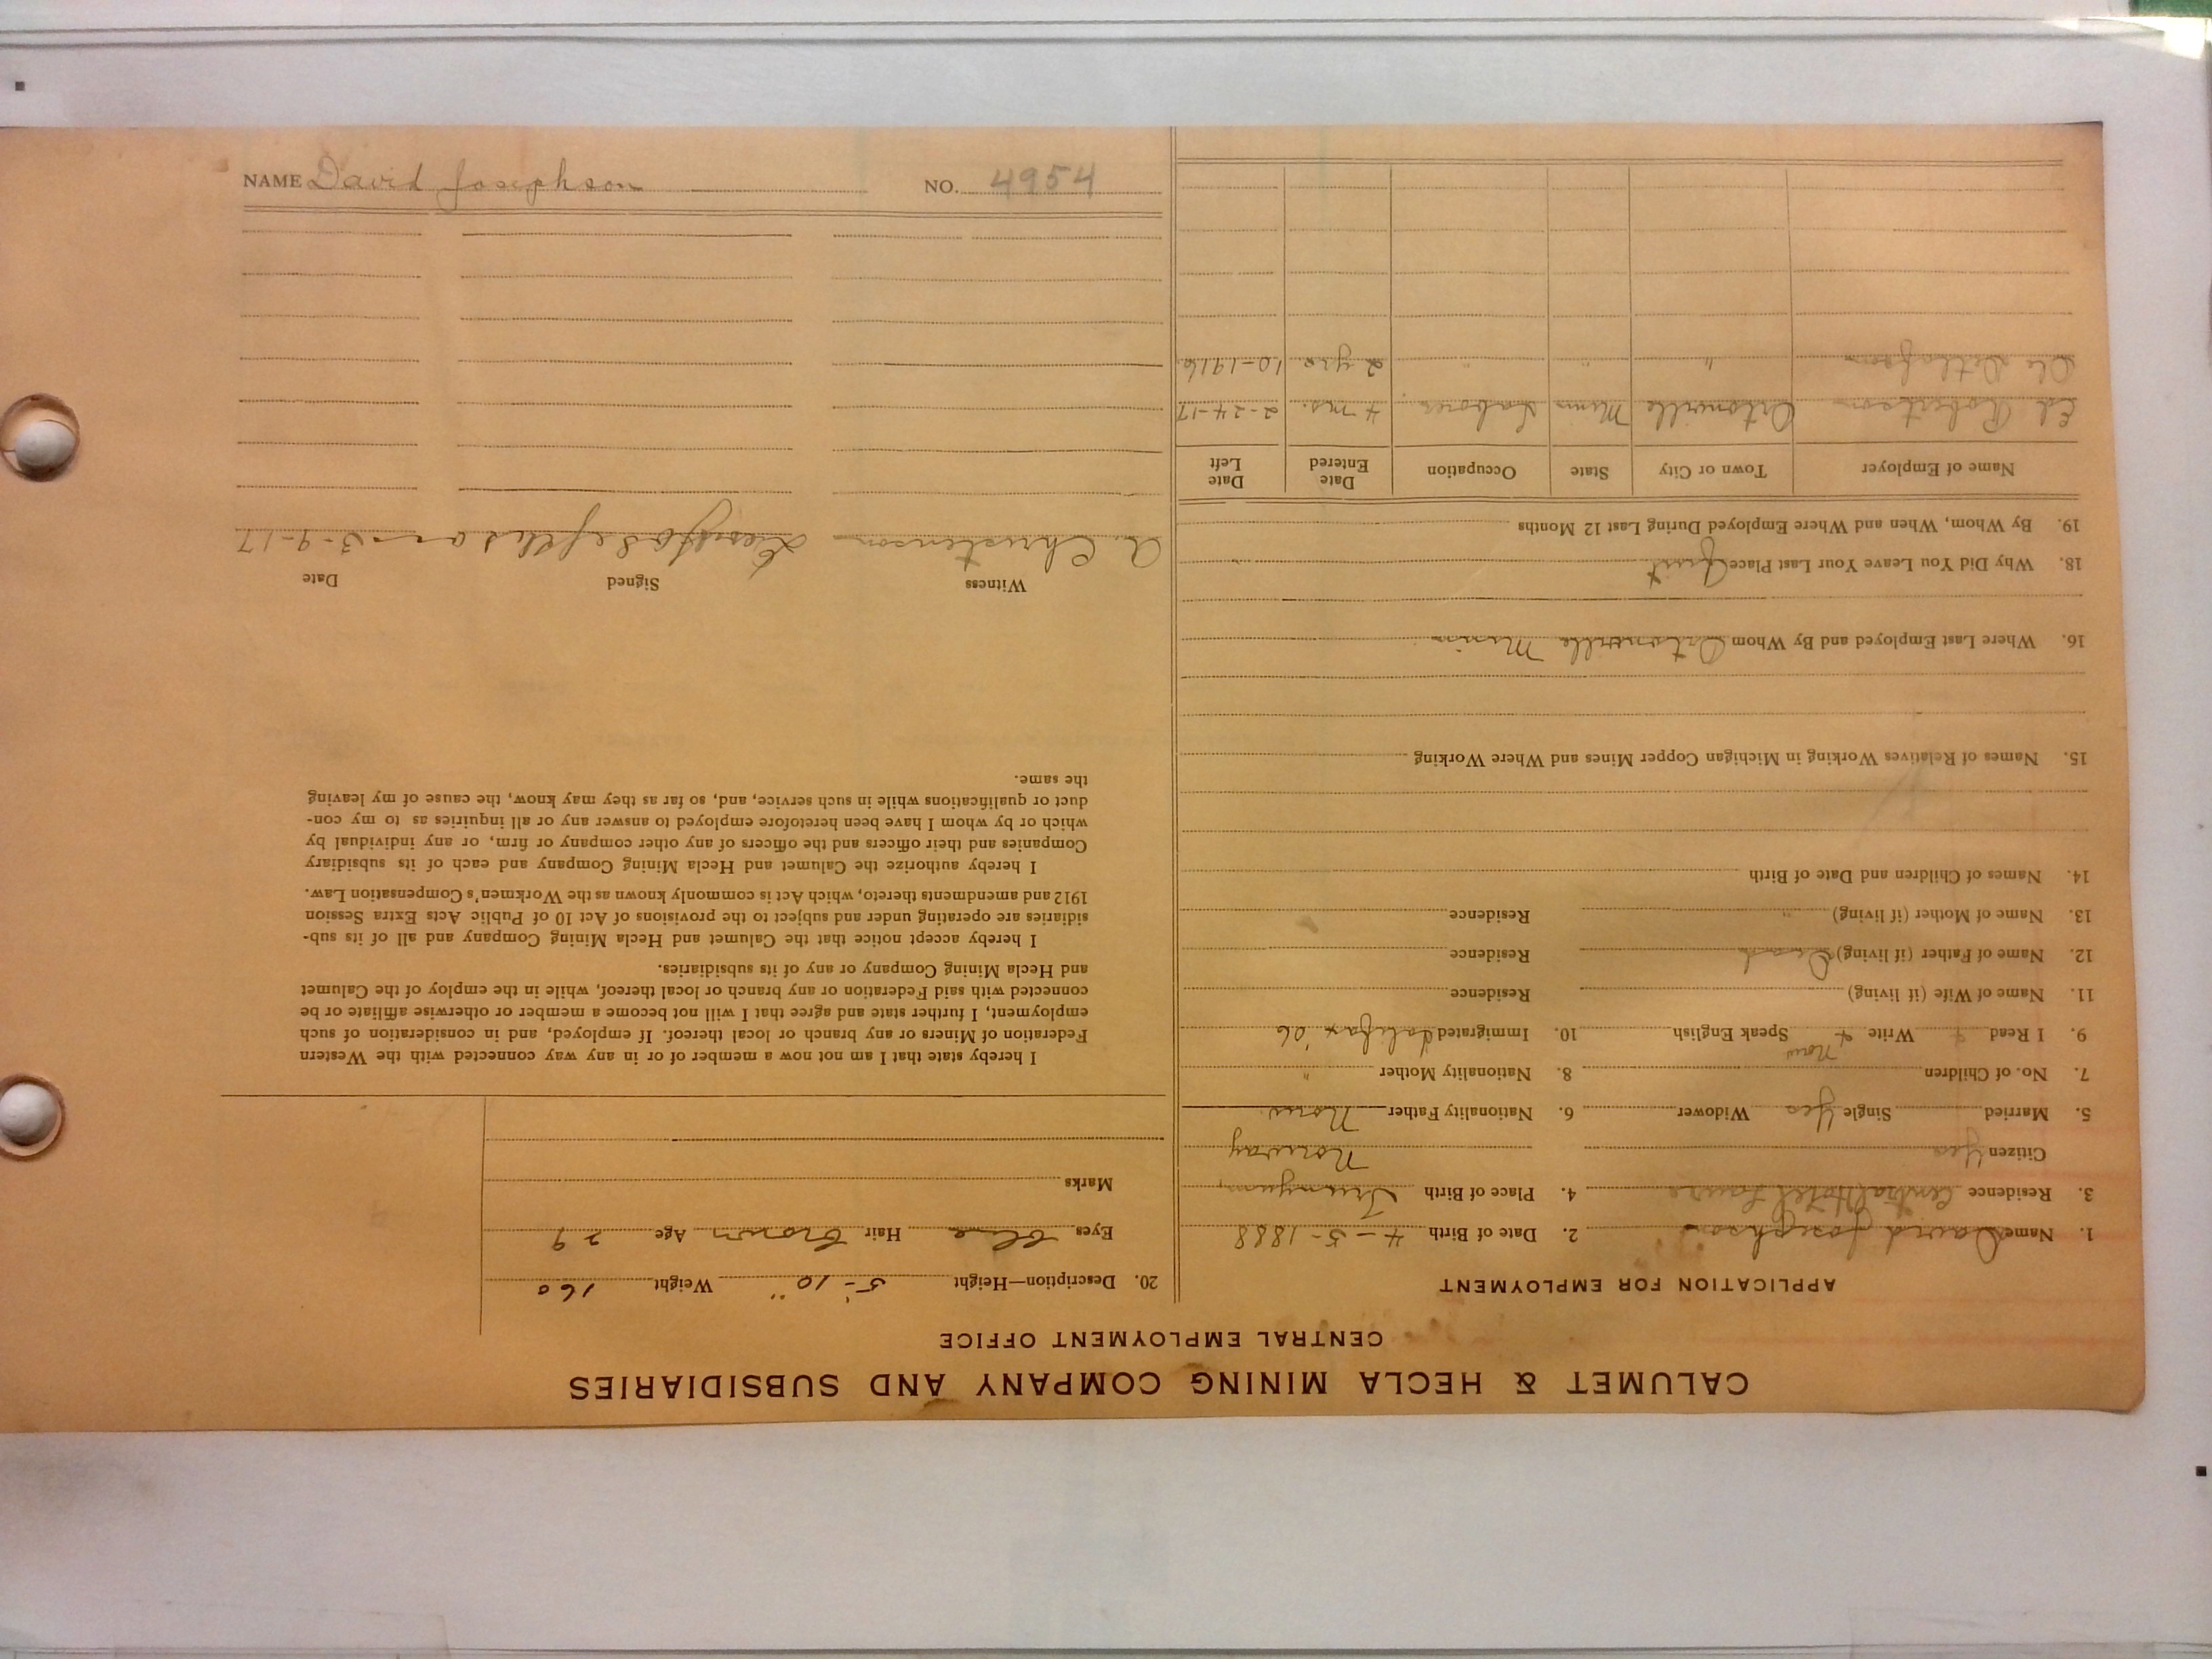 NAME David Josephson NO. 4954
CALUMET & HECLA MINING COMPANY AND SUBSIDIARIES
CENTRAL EMPLOYMENT OFFICE
APPLICATION FOR EMPLOYMENT
1. Name David Josephson 2. Date of Birth 4-5-1888
3. Residence Central Hotel 4. Place of Birth
Citizen Yes Norway
5. Married Single Yes Widower 6. Nationality Father Norw
7. No. of Children None 8. Nationality Mother "
9. I Read Write Speak English 10. Immigrated Halifax '06
11. Name of Wife (if living) Residence
12. Name of Father (if living) Dead Residence
13. Name of Mother (if living) " Residence
14. Names of Children and Date of Birth
15. Names of Relatives Working in Michigan Copper Mines and Where Working
16. Where Last Employed and By Whom Ortonville
18. Why Did You Leave Your Last Place Quit
19. By Whom, When and Where Employed During Last 12 Months
Name of Employer Town or City State Occupation Date Entered Date Left
Ed Robertson Ortonville Minn Laborer 4 mo. 2-24-17
Ole " " " 2 yrs 10-1916
20. Description—Height 5'-10" Weight 160
Eyes blue Hair Brown Age 29
Marks
I hereby state that I am not now a member of or in any way connected with the Western
Federation of Miners or any branch or local thereof. If employed, and in consideration of such
employment, I further state and agree that I will not become a member or otherwise affiliate or be
connected with said Federation or any branch or local thereof, while in the employ of the Calumet
and Hecla Mining Company or any of its subsidiaries.
I hereby accept notice that the Calumet and Hecla Mining Company and all of its sub-
sidiaries are operating under and subject to the provisions of Act 10 of Public Acts Extra Session
1912 and amendments thereto, which Act is commonly known as the Workmen's Compensation Law.
I hereby authorize the Calumet and Hecla Mining Company and each of its subsidiary
Companies and their officers and the officers of any other company or firm, or any individual by
which or by whom I have been heretofore employed to answer any or all inquiries as to my con-
duct or qualifications while in such service, and, so far as they may know, the cause of my leaving
the same.
Witness Signed Date
A. Christenson 3-9-17